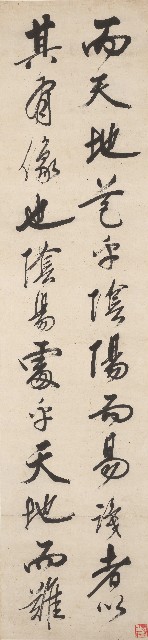 而天地苞乎陰陽而易識者以
其有像也陰陽處乎天地而難